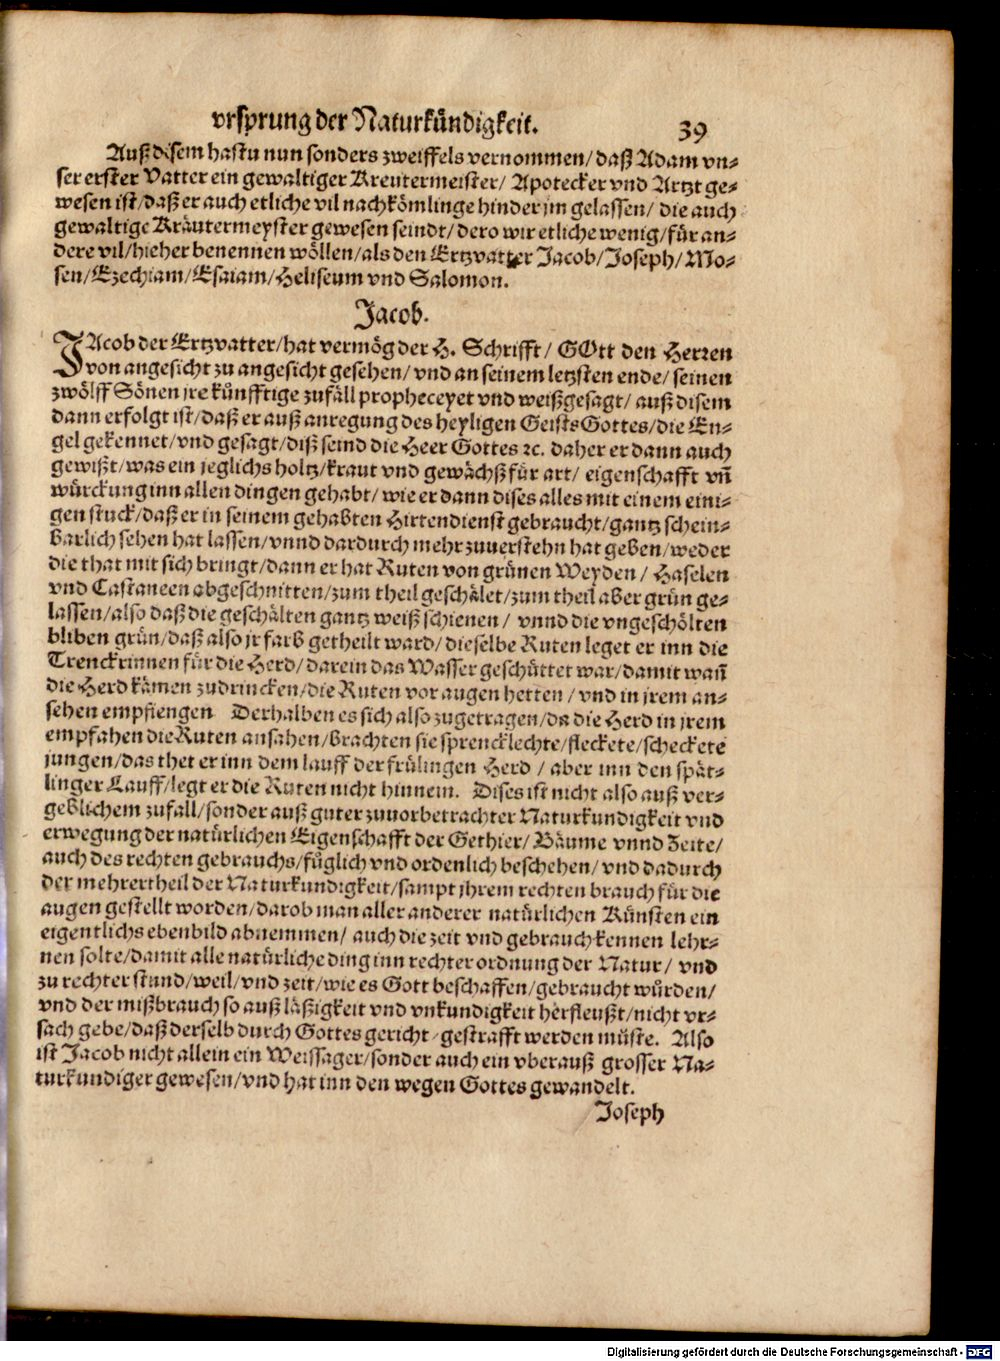 vrsprung der Naturkündigkeit. 39
Auß disem hastu nun sonders zweiffels vernommen/ daß Adam vn⸗
ser erster Vatter ein gewaltiger Kreutermeister/ Apotecker vnd Artzt ge⸗
wesen ist/ daß er auch etliche vil nachkömlinge hinder jm gelassen/ die auch
gewaltige Kräutermeyster gewesen seindt/ dero wir etliche wenig/ für an⸗
dere vil/ hieher benennen wöllen/ als den Ertzvatter Jacob/ Joseph/ Mo⸗
sen/ Ezechiam/ Esaiam/ Heliseum vnd Salomon.
Jacob.
JAcob der Ertzvatter/ hat vermög der H. Schrifft/ GOtt den Herren
von angesicht zu angesicht gesehen/ vnd an seinem letzsten ende/ seinen
zwölff Sönen jre künfftige zufäll propheceyet vnd weißgesagt/ auß disem
dann erfolgt ist/ daß er auß anregung des heyligen Geists Gottes/ die En⸗
gel gekennet/ vnd gesagt/ diß seind die Heer Gottes ꝛc. daher er dann auch
gewißt/ was ein jeglichs holtz/ kraut vnd gewächß für art/ eigenschafft vñ
würckung inn allen dingen gehabt/ wie er dann dises alles mit einem eini⸗
gen stuck/ daß er in seinem gehabten Hirtendienst gebraucht/ gantz schein⸗
barlich sehen hat lassen/ vnnd dardurch mehr zuuerstehn hat geben/ weder
die that mit sich bringt/ dann er hat Ruten von grünen Weyden/ Haselen
vnd Castaneen abgeschnitten/ zum theil geschälet/ zum theil aber grün ge⸗
lassen/ also daß die geschälten gantz weiß schienen/ vnnd die vngeschölten
bliben grün/ daß also jr farb getheilt ward/ dieselbe Ruten leget er inn die
Trenckrinnen für die Herd/ darein das Wasser geschüttet war/ damit wañ
die Herd kämen zudrincken/ die Ruten vor augen hetten/ vnd in jrem an⸗
sehen empfiengen Derhalben es sich also zugetragen/ da die Herd in jrem
empfahen die Ruten ansahen/ brachten sie sprencklechte/ fleckete/ scheckete
jungen/ das thet er inn dem lauff der frülingen Herd/ aber inn den spät⸗
linger Lauff/ legt er die Ruten nicht hinnein. Dises ist nicht also auß ver⸗
geblichem zufall/ sonder auß guter zuuorbetrachter Naturkundigkeit vnd
erwegung der natürlichen Eigenschafft der Gethier/ Bäume vnnd Zeite/
auch des rechten gebrauchs/ füglich vnd ordenlich beschehen/ vnd dadurch
der mehrertheil der Naturkundigkeit/ sampt jhrem rechten brauch für die
augen gestellt worden/ darob man aller anderer natürlichen Künsten ein
eigentlichs ebenbild abnemmen/ auch die zeit vnd gebrauch kennen lehr⸗
nen solte/ damit alle natürliche ding inn rechter ordnung der Natur/ vnd
zu rechter stund/ weil/ vnd zeit/ wie es Gott beschaffen/ gebraucht würden/
vnd der mißbrauch so auß läßigkeit vnd vnkundigkeit herfleußt/ nicht vr⸗
sach gebe/ daß derselb durch Gottes gericht/ gestrafft werden müste. Also
ist Jacob nicht allein ein Weissager/ sonder auch ein vberauß grosser Na⸗
turkundiger gewesen/ vnd hat inn den wegen Gottes gewandelt.
Joseph
Digitalisierung gefördert durch die Deutsche Forschungsgemeinschaft - DFG